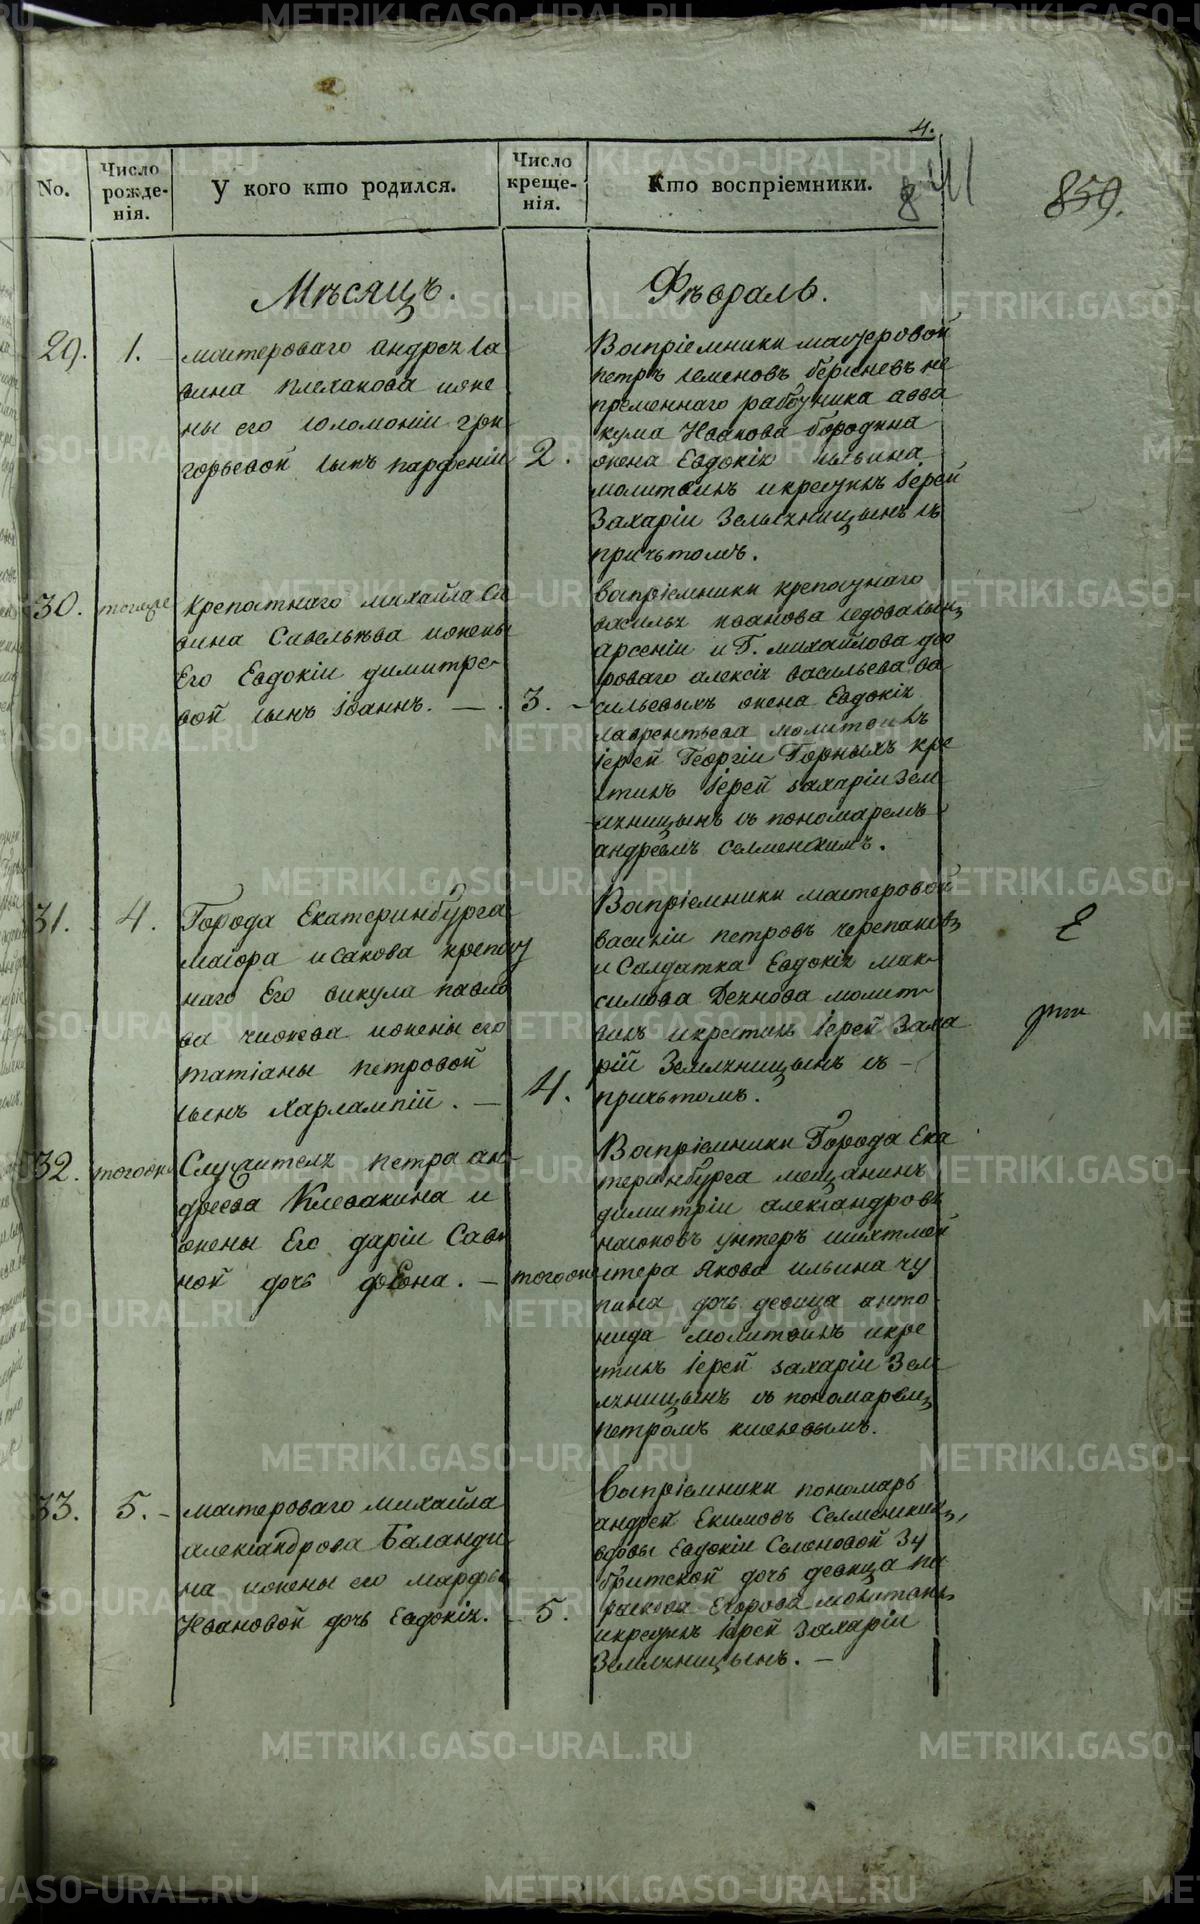 4.
No.
Число рожде-нія.
У кого кто родился.
Число креще-нія.
Кто воспріемники.
841
859.
Мѣсяцъ.
Фѣвраль.
29.
1.
мастероваго андрея са
вина плеханова ижѐ
ны его соломоніи гри
горьевой сынъ парфеніи
2.
Воспріемники мастеровой
петръ семеновъ берсневъ не
пременнаго работника авва
кума Иванова бородина
жена Евдокія ильина
молитвилъ икрестилъ Іерей
Захаріи Землянищынъ съ
причьтомъ.
30.
тогоже
крепостнаго михайла са
вина Савельѣва ижены
Его Евдокіи димитре-
вой сынъ Іоаннъ.
3.
воспріемники крепостнаго
василья иванова седова сынъ
арсеніи и Г. михайлова дво
роваго алексія васильева ва
сильевыхъ жена Евдокія
лаврентьева молитвилъ
іерей Георгіи Горныхъ кре
стилъ Іерей захаріи Зем
лянищынъ съ пономаремъ
андреемъ Селменскимъ.
31.
4.
Города Екатеринбурга
маіора исакова крепост
наго Его викула павло
ва чижева ижены его
татіаны петровой
сынъ Харлампій.
4.
Воспріемники мастеровой
василіи петровъ черепановъ
и Салдатка Евдокія мак-
симова молит-
вилъ икрестилъ Іерей Заха
рій Землянищынъ съ
причьтомъ.
32.
тогоже
Служителя петра ан-
дреева Клевакина и
жены Его даріи Сави
ной дочь фѣвна.
тогоже
Воспріемники Города Ека
теринбурга мещанинъ
димитріи александровъ
унтеръ шихтмей
стера Якова ильина чу
пина дочь девица анто
нида молитвилъ икре
стилъ іерей захаріи Зем
лянищынъ съ пономаремъ
петромъ
33.
5.
мастероваго михайла
александрова Баланди
на ижены его марфы
Ивановой дочь Евдокія.
5.
Воспріемники пономарь
андрей Екимовъ Селменскихъ,
вдовы Евдокіи Семеновой Зу
бритской дочь девица па
расковья Егорова молитвилъ
икрестилъ Іерей Захаріи
Землянищынъ.